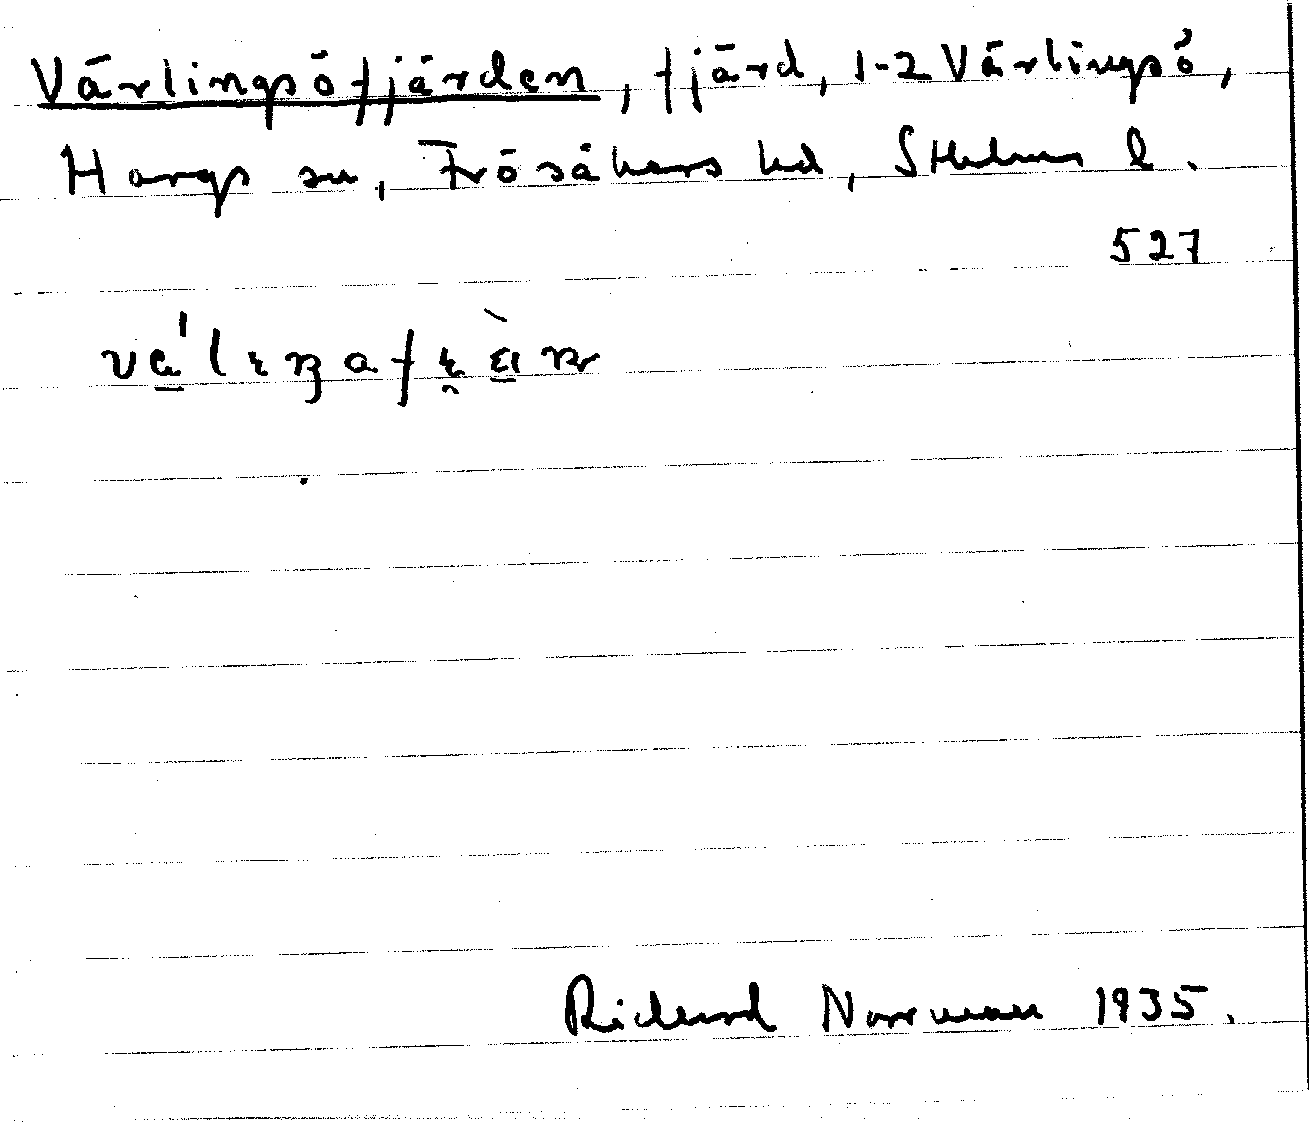 Värlingsöfjärden, fjärd, 1-2 Värlingsö,
Hargs sn, Frösåkers hd, Sthlms l.
527
Richard Norrman 1935.